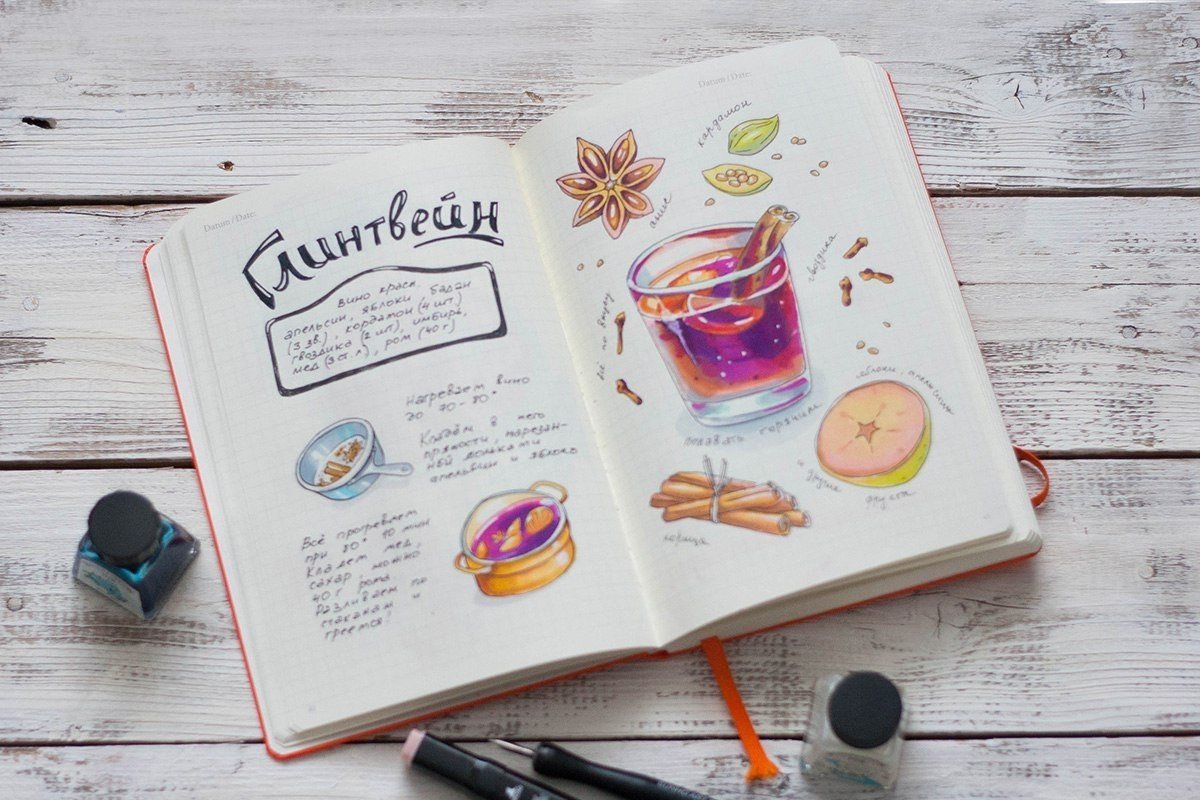 Datum / Date:
Глинтвейн
вино красн.
апельсин, яблоки, бадьян
(3 зв.), кардамон (4 шт.)
гвоздика (2 шт), имбирь,
мед (3 ст. л), ром (40 г)
Нагреваем вино
до 70-80°
Кладём в него
пряности, нарезан-
ный дольками
апельсин и яблоко
Всё прогреваем
при 80° 10 мин
Кладем мед,
сахар, можно
40 г рома
Разливаем по
стаканам и
греемся!
Datum / Date:
кардамон
анис
гвоздика
всё по вкусу
яблоки, апельсины
подавать горячим
и другие
фрукты
корица